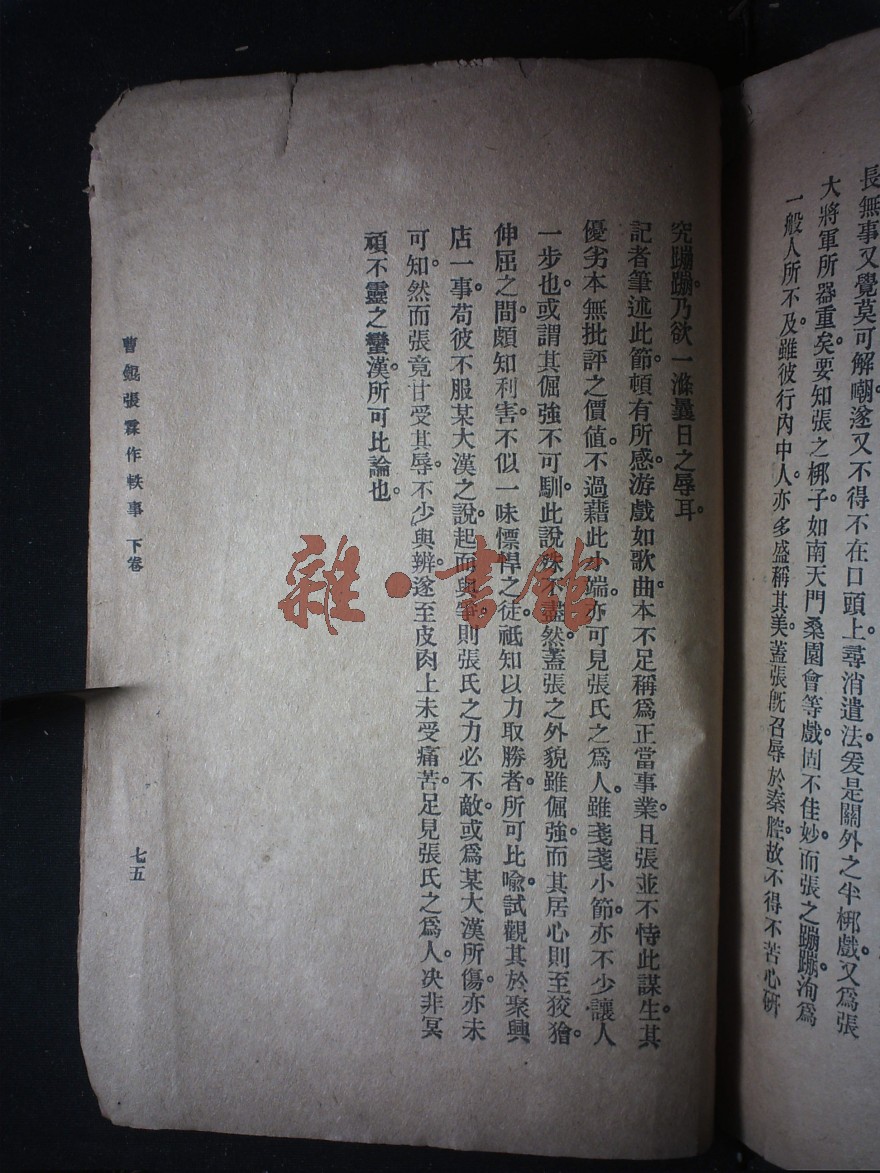 長無事又覺莫可解嘲。遂又不得不在口頭上尋消遣法。爰是關外之半梆戲。又爲張
大將軍所器重矣。要知張之梆子。如南天門桑園會等戲。固不佳妙。而張之蹦蹦。洵爲
一般人所不及。雖彼行內中人。亦多盛稱其美。蓋張旣召辱於秦腔。故不得不苦心硏
究蹦蹦。乃欲一滌曩日之辱耳。
記者筆述此節。頓有所感。游戲如歌曲。本不足稱爲正當事業。且張並不恃此謀生。其
優劣本無批評之價値。不過藉此小端。亦可見張氏之爲人。雖戔戔小節。亦不少讓人
一步也。或謂其倔強不可馴。此說殊不盡然。蓋張之外貌雖倔強。而其居心則至狡獪。
伸屈之間。頗知利害。不似一味慓悍之徒。祇知以力取勝者。所可比喩。試觀其於聚興
店一事。苟彼不服某大漢之說。起而與爭。則張氏之力必不敵。或爲某大漢所傷。亦未
可知。然而張竟甘受其辱。不少與辨。遂至皮肉上未受痛苦。足見張氏之爲人。決非冥
頑不靈之蠻漢。所可比論也。
曹錕張霖作軼事 下卷
七五
雜·書館